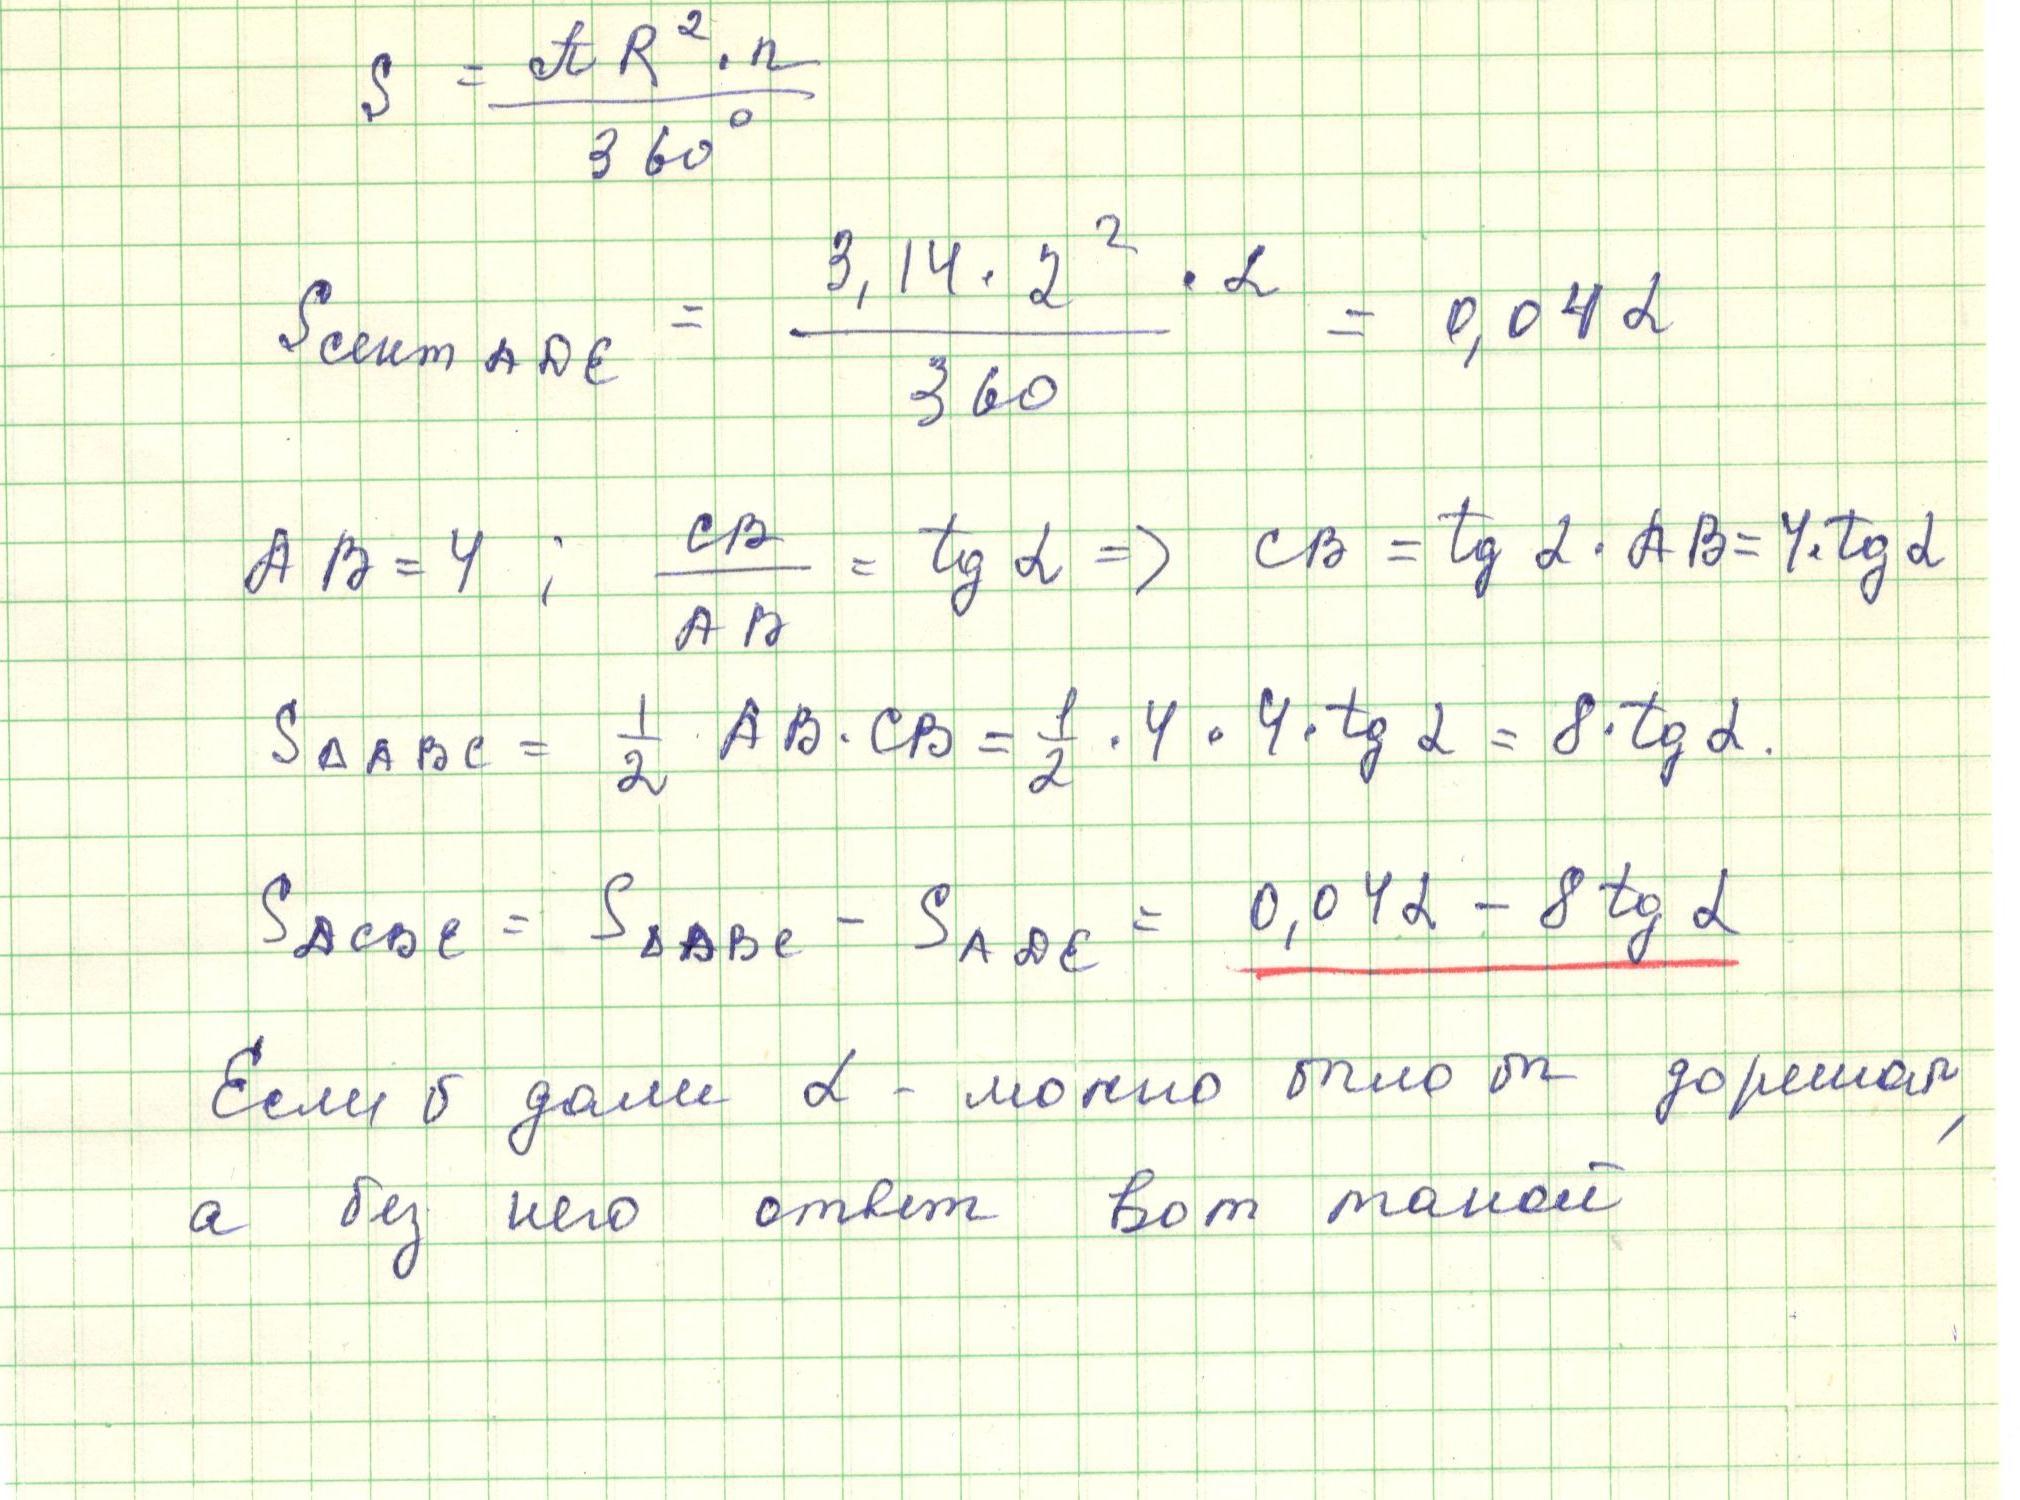 S = πR² · n / 360°
Sсект ADE = 3,14 · 2² · α / 360 = 0,04 α
AB = 4 ; CB / AB = tg α => CB = tg α · AB = 4 · tg α
SΔABC = 1/2 AB · CB = 1/2 · 4 · 4 · tg α = 8 · tg α.
SDCBE = SΔABC - SADE = 0,04 α - 8 tg α
Если б дали α - можно было бы дорешать,
а без него ответ вот такой